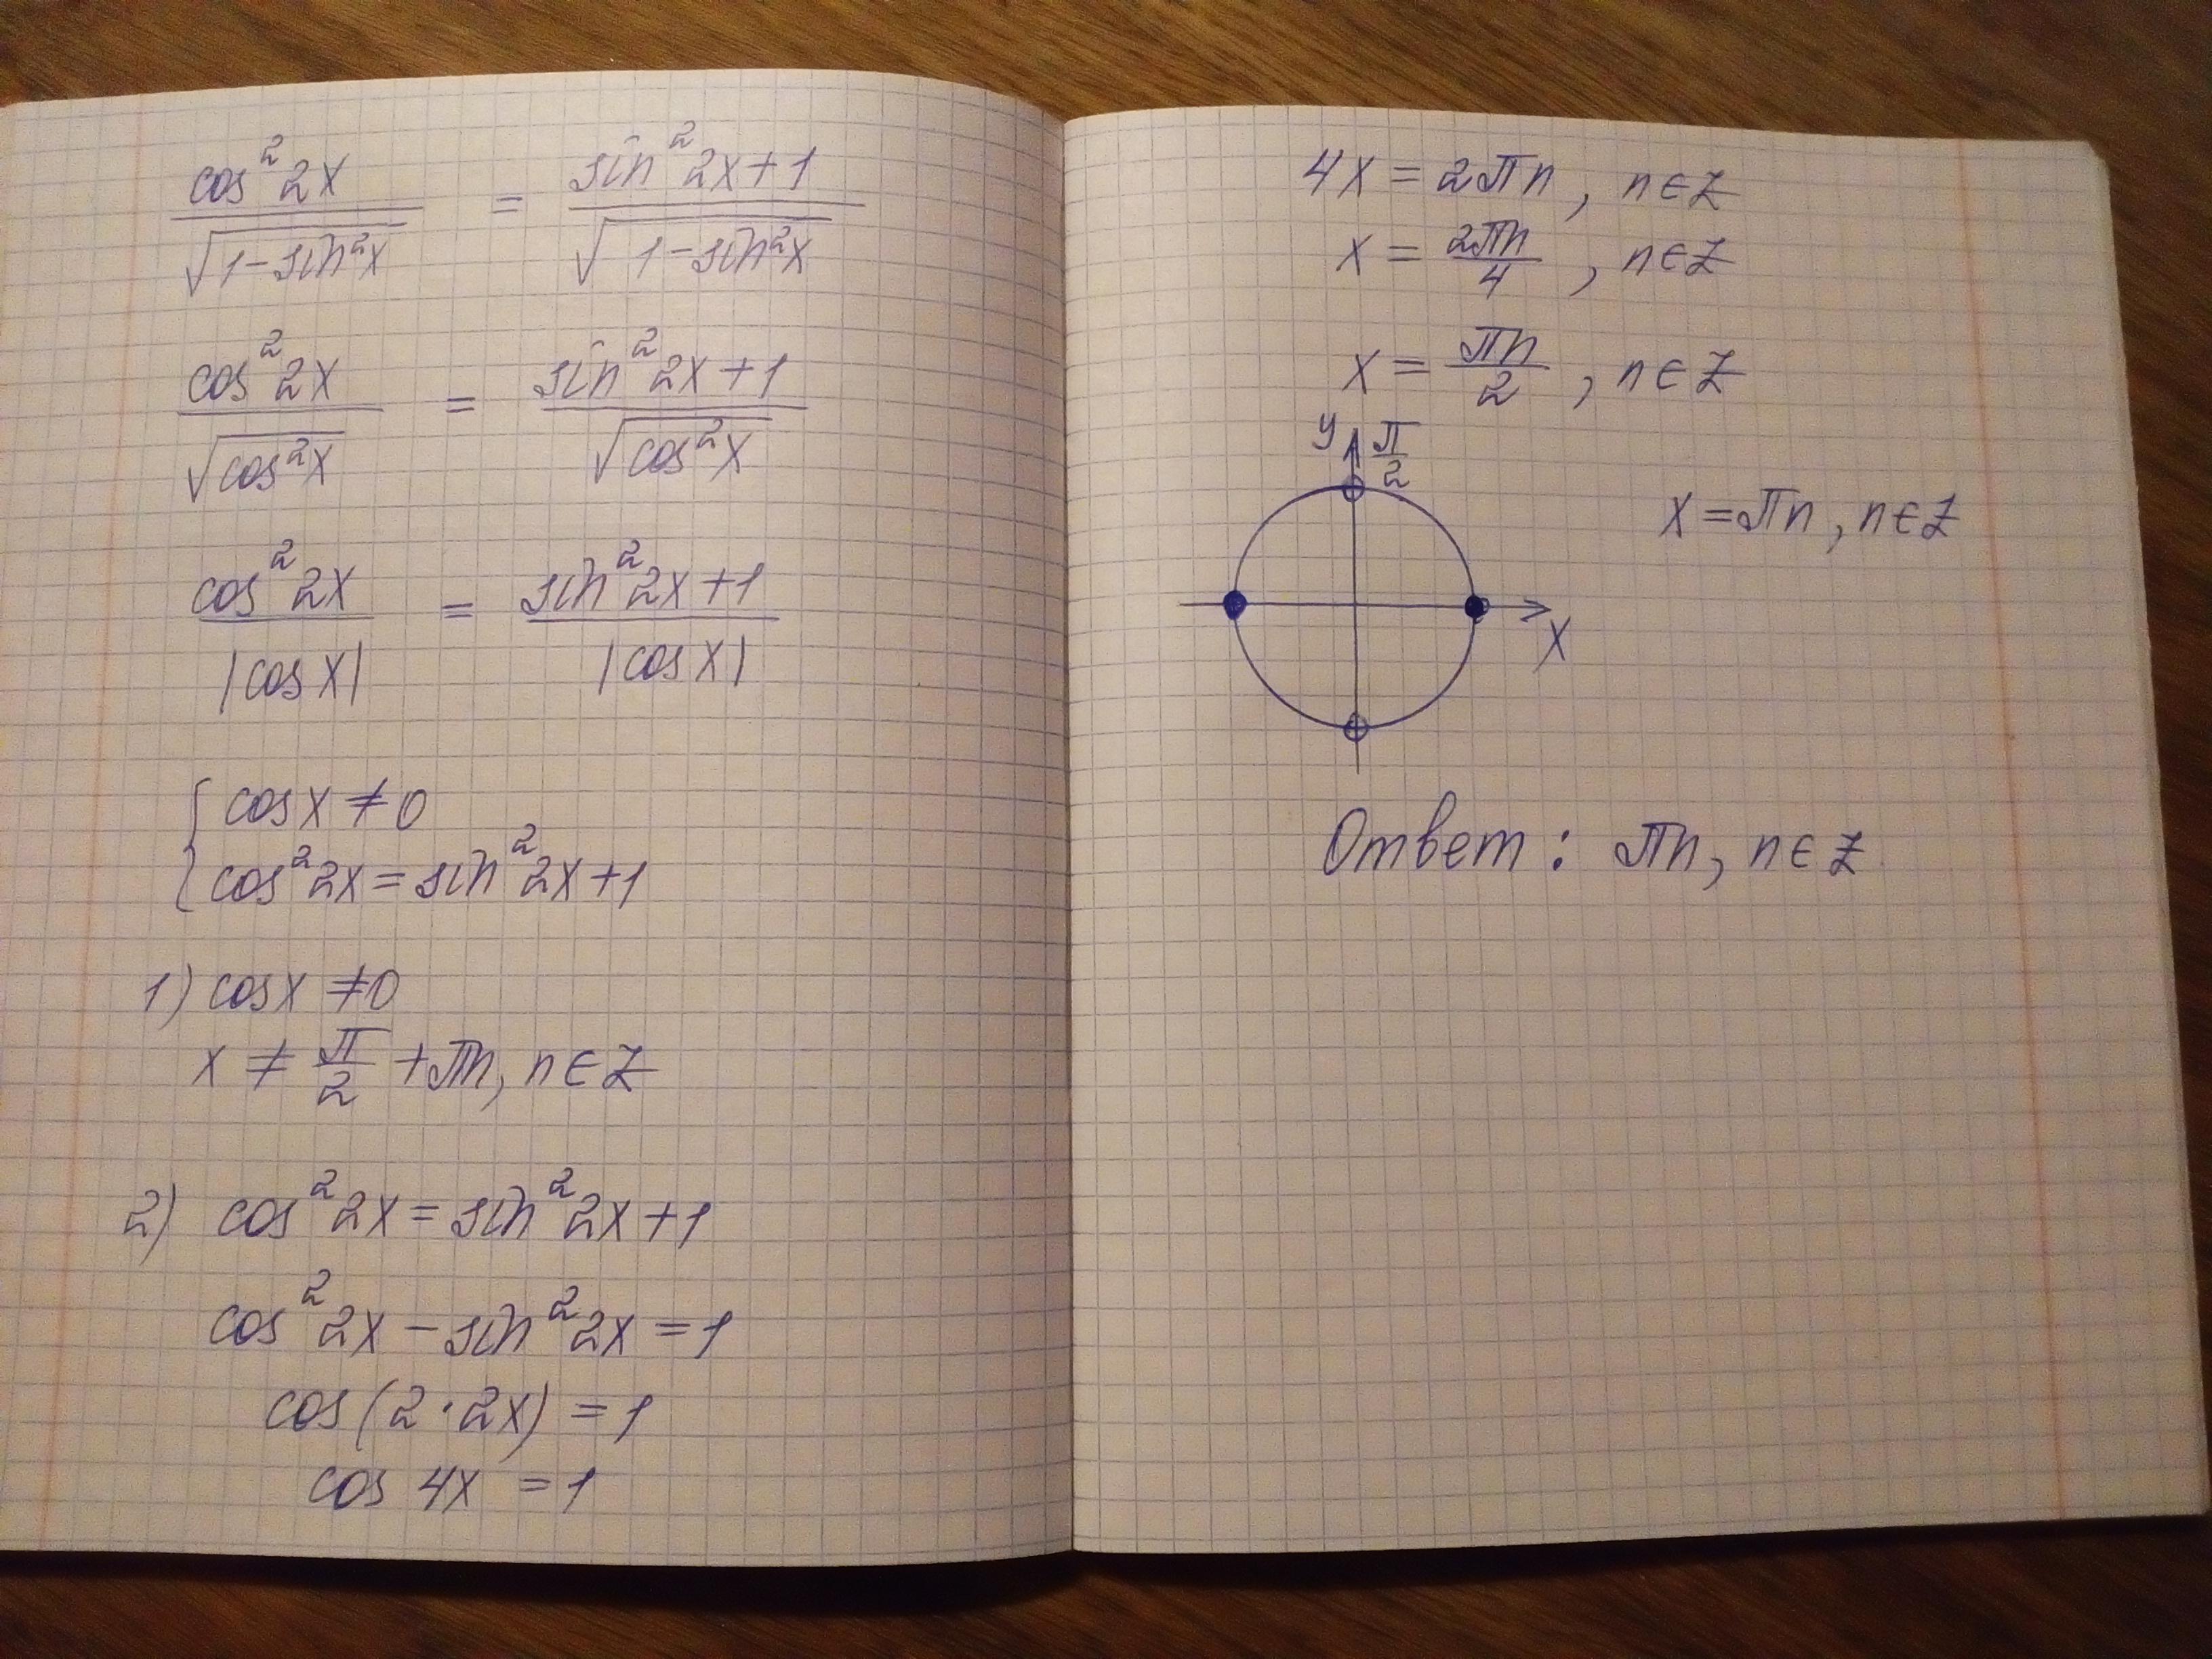 cos²2x / √(1-sin²x) = (sin²2x+1) / √(1-sin²x)
cos²2x / √(cos²x) = (sin²2x+1) / √(cos²x)
cos²2x / |cosx| = (sin²2x+1) / |cosx|
{ cosx ≠ 0
cos²2x = sin²2x+1
1) cosx ≠ 0
x ≠ π/2 + πn, n∈Z
2) cos²2x = sin²2x+1
cos²2x - sin²2x = 1
cos(2·2x) = 1
cos 4x = 1
4x = 2πn, n∈Z
x = 2πn/4, n∈Z
x = πn/2, n∈Z
y π/2
x = πn, n∈Z
x
Ответ: πn, n∈Z